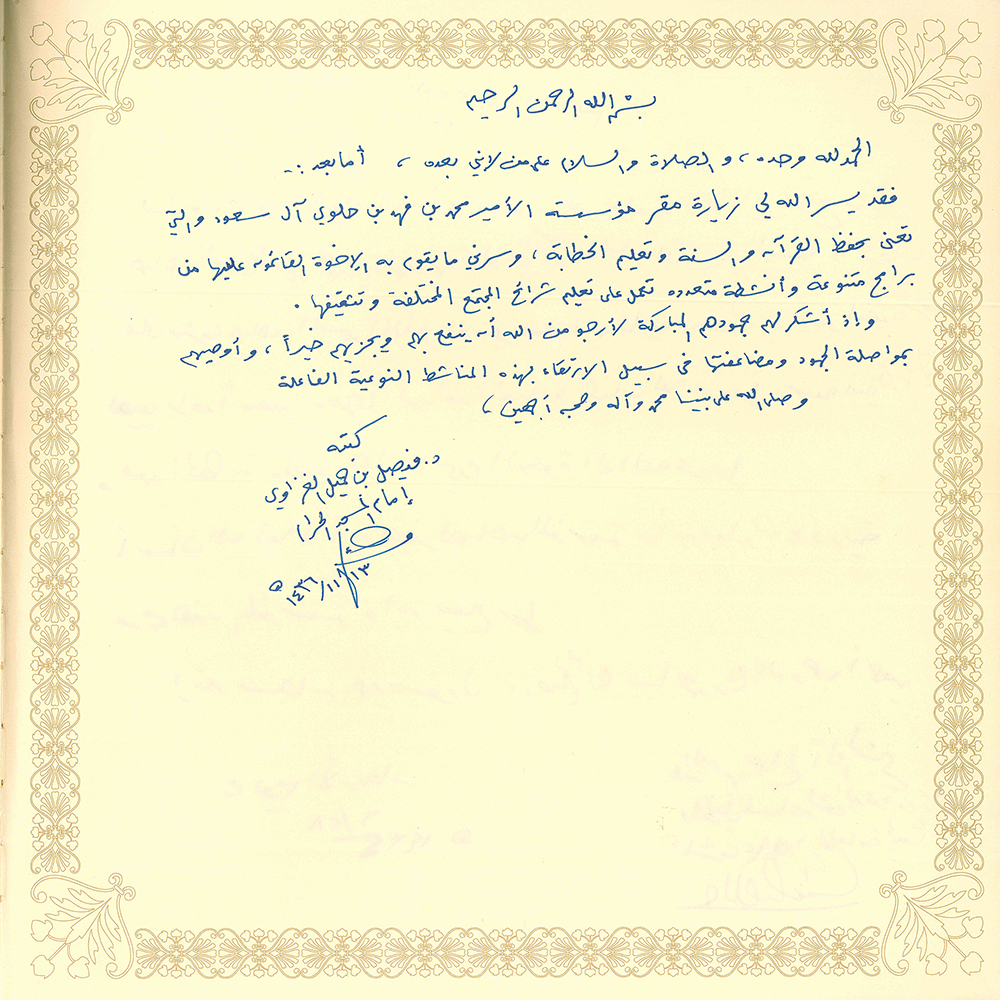 بسم الله الرحمن الرحيم
الحمد لله وحده، والصلاة والسلام على من لا نبي بعده، أما بعد:..
فقد يسر الله لي زيارة مقر مؤسسة الأمير محمد بن فهد بن جلوي آل سعود والتي
تعنى بحفظ القرآن والسنة وتعليم الخطابة، وسرني ما يقوم به الإخوة القائمون عليها من
برامج متنوعة وأنشطة متعدده تعمل على تعليم شرائح المجتمع المختلفة وتثقيفها.
وإذ أشكر لهم جهودهم المباركة لأرجو من الله أن ينفع بهم ويجزيهم خيراً، وأوصيهم
بمواصلة الجهود ومضاعفتها في سبيل الارتقاء بهذه المناشط النوعية الفاعلة
وصلى الله على نبينا محمد وآله وصحبه أجمعين،
كتبه
د. فيصل بن جميل الغزاوي
إمام المسجد الحرام
١٤٣٦/١١/١٣ هـ